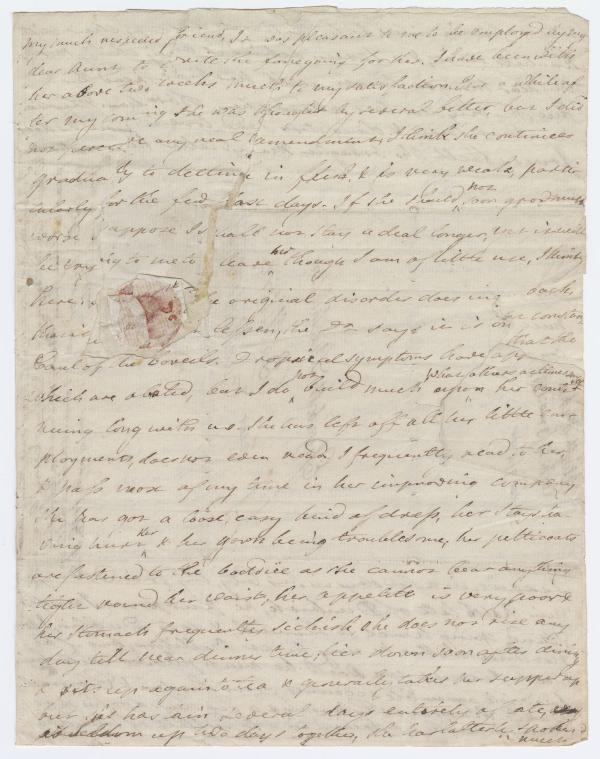 my much respected friend, It was pleasant to me to be employ'd by my
dear Aunt to write the foregoing for her. I have been with
her above two weeks much to my satisfaction. For a while af
ter my coming she was thought by several better, but I did
not perceive any real amendment, I think she continues
gradually to decline in flesh, & is very weak, partic
ularly for the few last days. If she should not grow much
worse I suppose I shall not stay a deal longer, but it will
be trying to me to leave her though I am of little use, I think,
here. the original disorder does in
lessen, the Dr says it is on
Caul of the bowels. Dropsical symptoms have
which are abated, but I do not build much upon her conti
nuing long with us. She has left off all her little em
ployments, does not even read. I frequently read to her,
& pass most of my time in her improving company
She has got a loose, easy kind of dress, her Stays ha
ving hurt her & her gown being troublesome, her petticoats
are fastened to the boddice as she cannot bear anything
tight round her waist, her appetite is very poor &
her stomach frequently sickish she does not rise any
day till near dinner time, lies down soon after dining
& sits up again to tea & generally takes her supper up
but she has lain several days entirely of late,
seldom up two days together, she has latterly